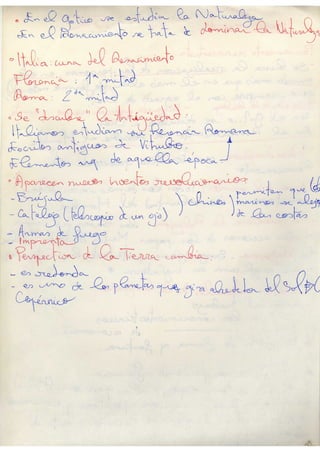 • En el Gótico se estudia la Naturaleza
En el Renacimiento se trata de dominar la Naturaleza
• Italia: cuna del Renacimiento
Florencia: 1ª mitad
Roma: 2ª mitad
• Se "descubre" la Antigüedad
Italianos estudian su Roma
Escritos antiguos de Vitrubio
Elementos arq de aquella época
• Aparecen nuevos inventos revolucionarios
- Brújula
- Catalejo (telescopio de un ojo) } chinos } permiten que los
marinos se alejen
de las costas
- Armas de fuego
- Imprenta
• Perspectiva de la Tierra cambia.
- es redonda
- es uno de los planetas que gira alrededor del Sol
Copérnico